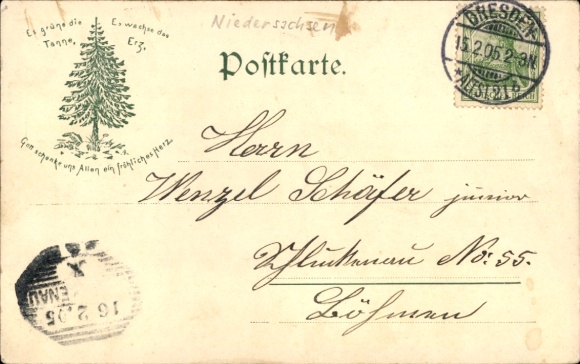 Niedersachsen
Es grüne die Tanne,
Es wachse das Erz,
Gott schenke uns Allen ein fröhliches Herz
DRESDEN
ALTST. 21
Postkarte.
Herrn
Wenzel Schäfer junior
Schluckenau No: 55.
Böhmen
16 2 05
ENAU